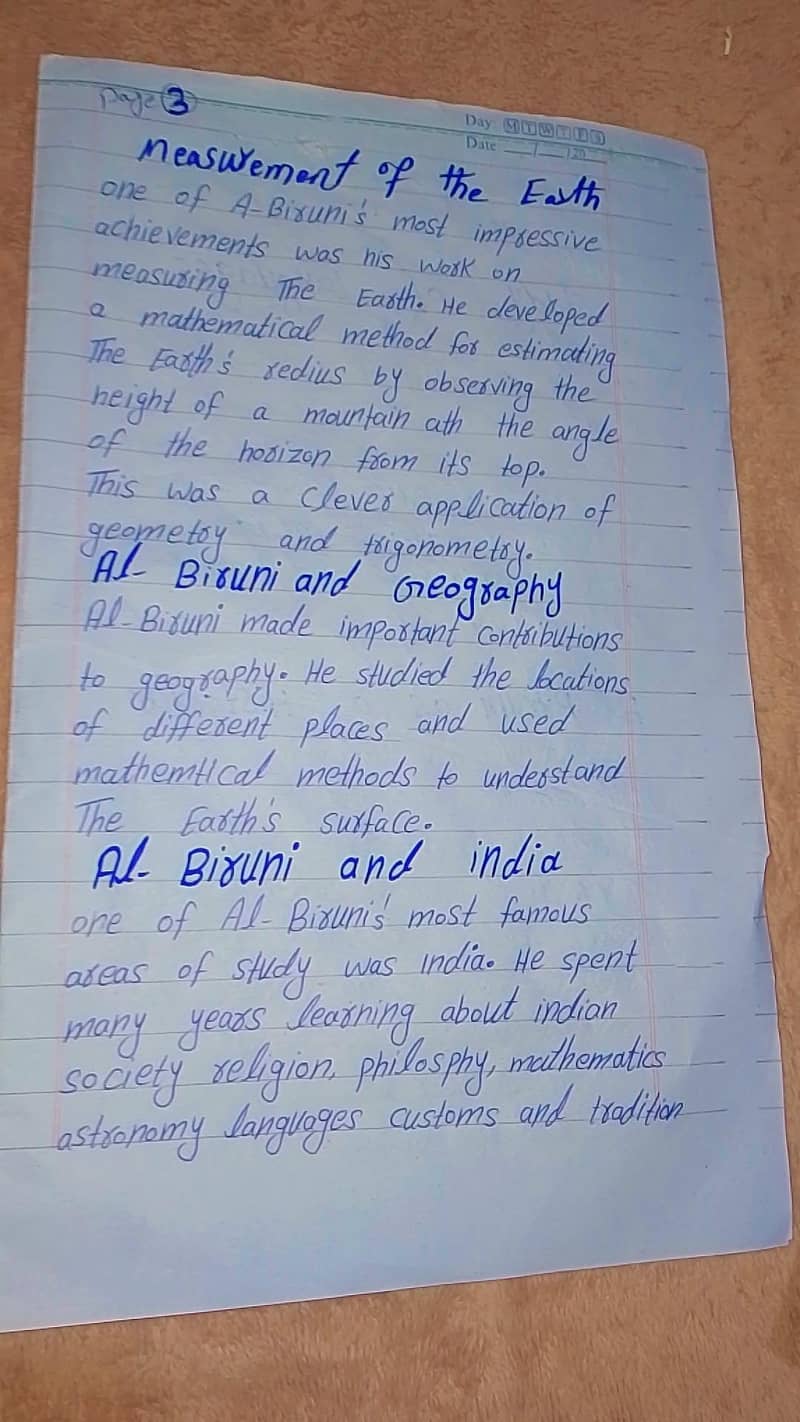 Page 3
Day M T W T F S
Date __/__/20
Measurement of the Earth
one of A-Biruni's most impressive
achievements was his work on
measuring The Earth. He developed
a mathematical method for estimating
The Earth's redius by observing the
height of a mountain ath the angle
of the horizon from its top.
This was a clever application of
geometry and trigonometry.
Al- Biruni and Geography
Al-Biruni made important contributions
to geography. He studied the locations
of different places and used
mathemtical methods to understand
The Earth's surface.
Al- Biruni and india
one of Al-Biruni's most famous
areas of study was india. He spent
many years learning about indian
society religion, philosphy, mathematics
astronomy languages customs and tradition